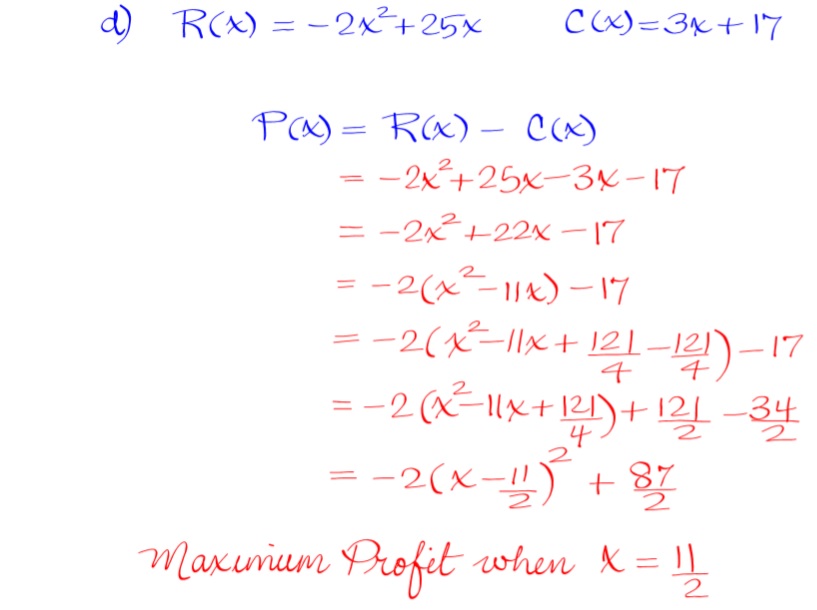 d) R(x) = -2x²+25x C(x)=3x+17
P(x) = R(x) - C(x)
= -2x²+25x-3x-17
= -2x²+22x-17
= -2(x²-11x)-17
= -2(x²-11x+121/4-121/4)-17
= -2(x²-11x+121/4)+121/2-34/2
= -2(x-11/2)²+87/2
Maximum Profit when x = 11/2